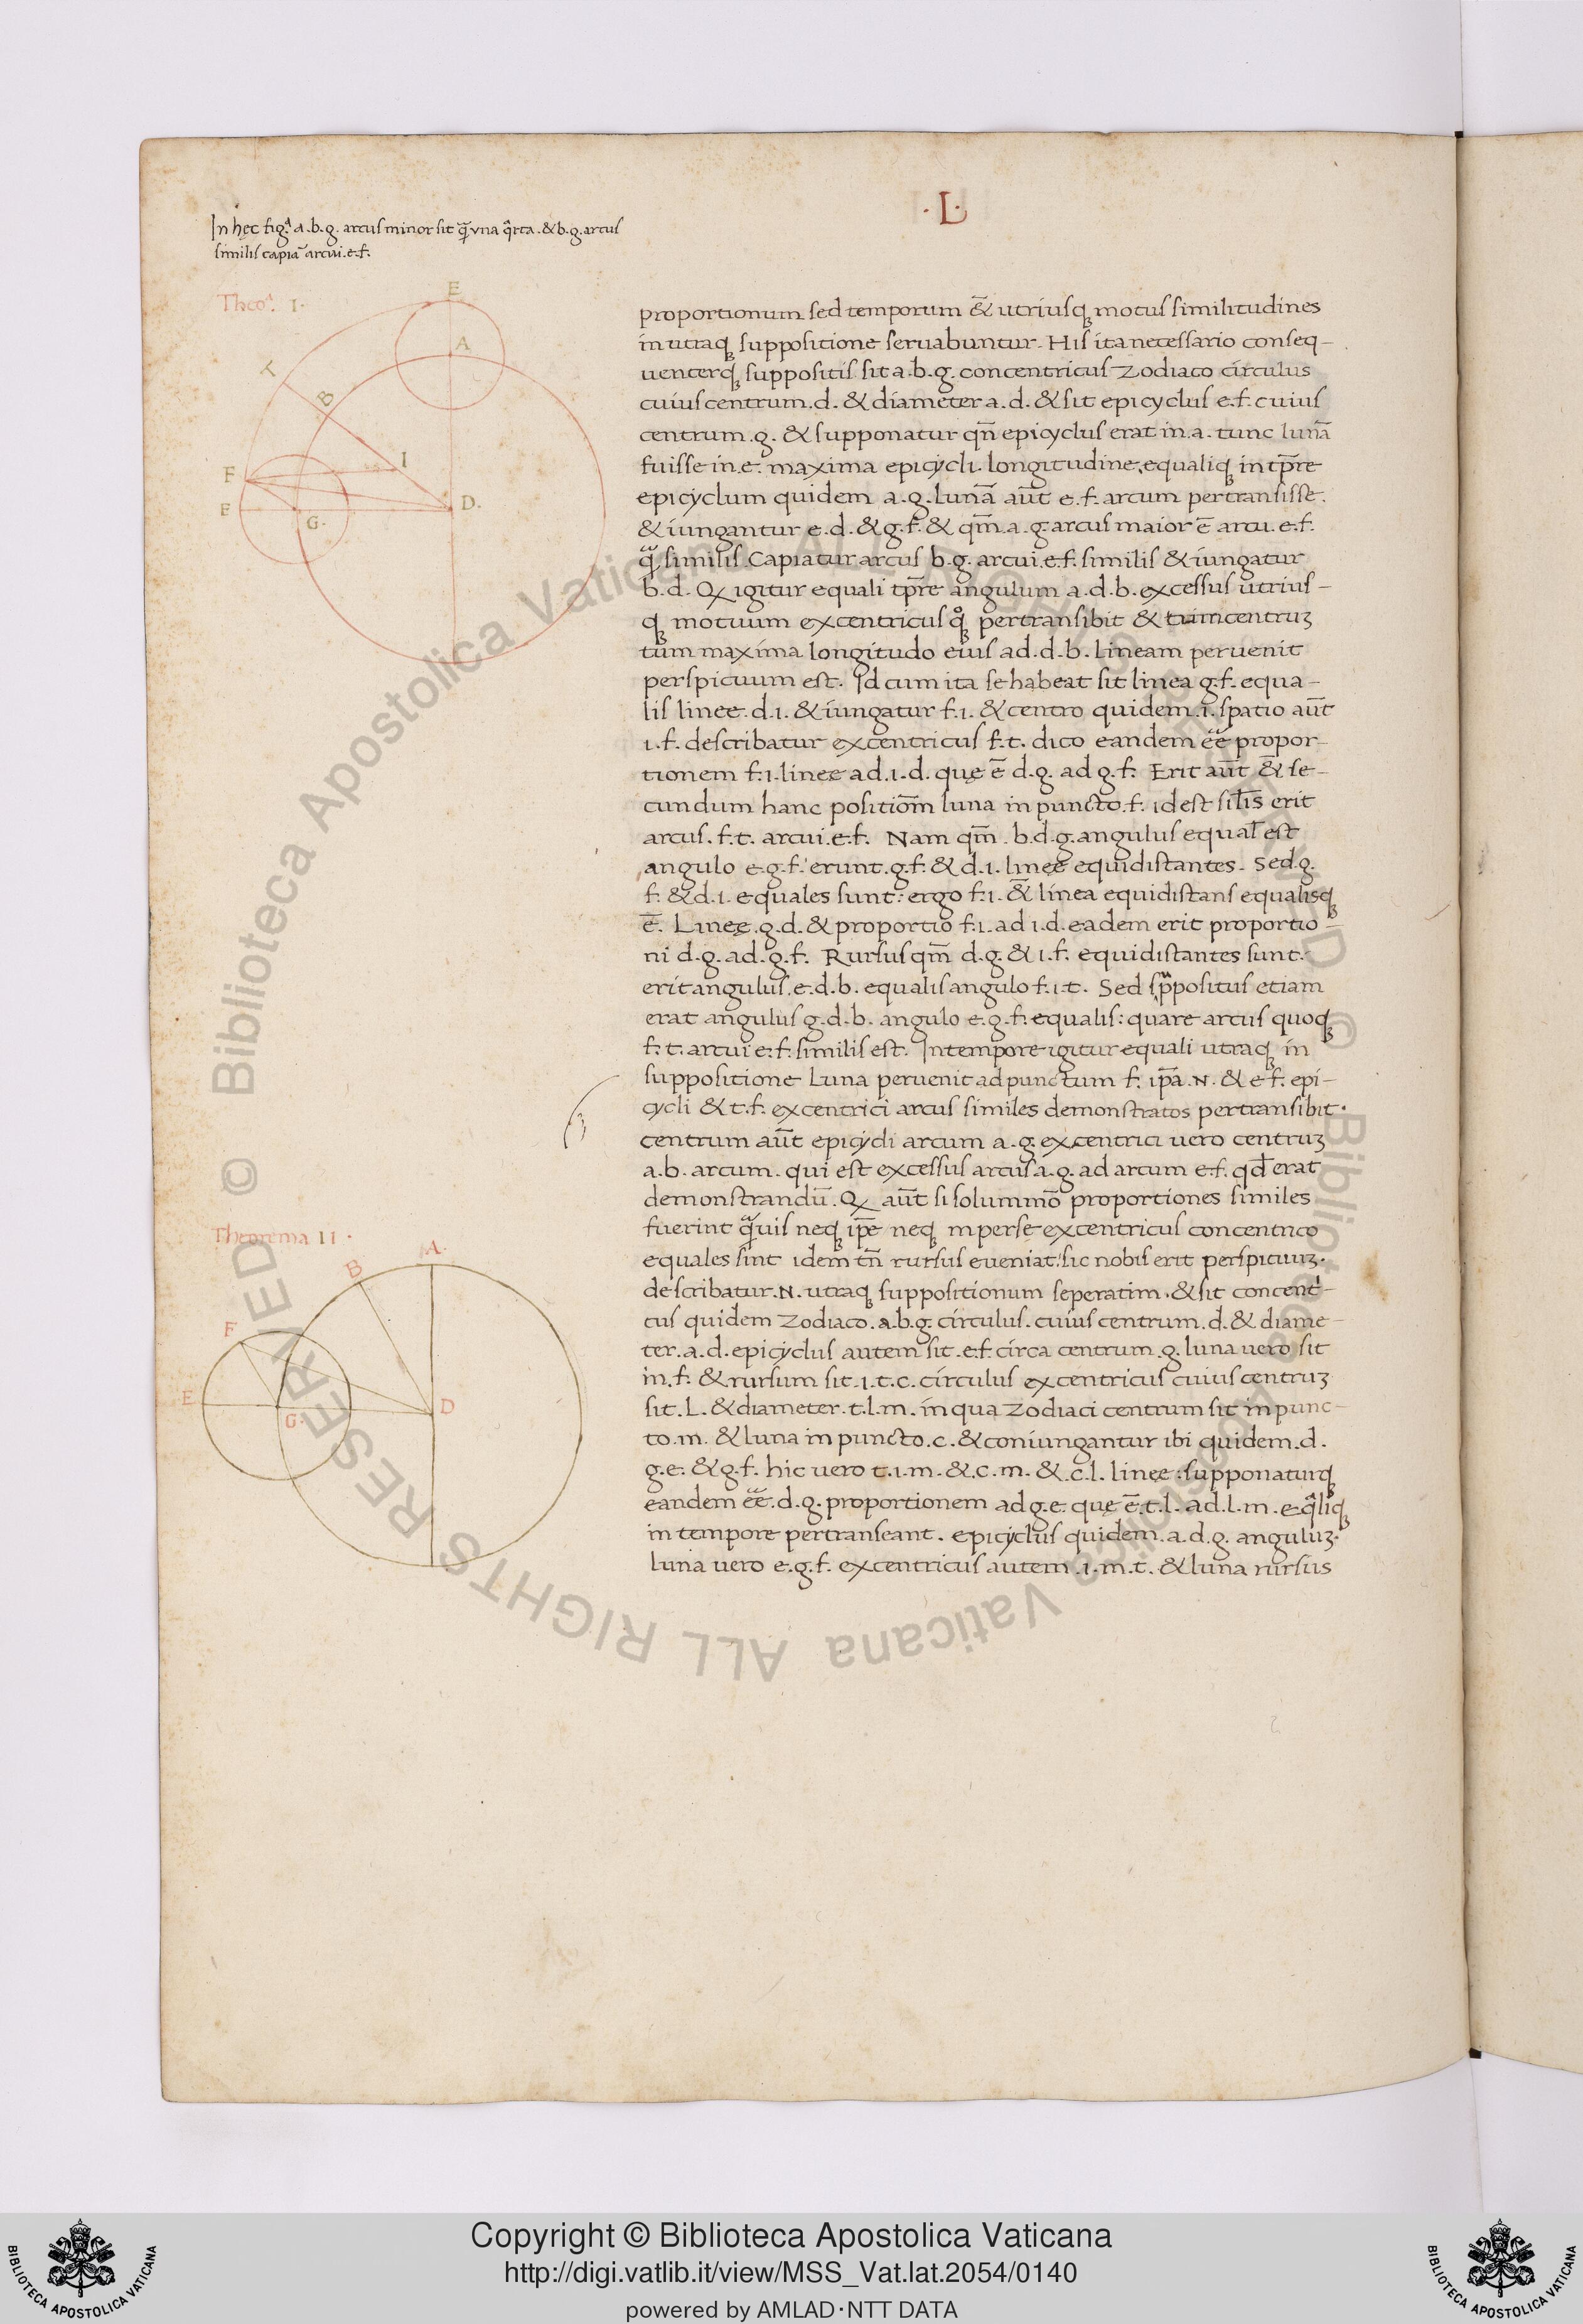 ·L·
In hęc fig.ª a.b.g. arcus minor sit q̃ vna q̃rta. & b.g. arcus
similis capiaᷓ arcui.e.f.
Theoª. I·
E
A
T
B
F
I
E
D.
G.
proportionum sed temporum &̃ utriusqꝫ motus similitudines
in utraqꝫ suppositione seruabuntur. His ita necessario conseq-
uenterqꝫ suppositis sit a.b.g. concentricus Zodiaco circulus
cuius centrum.d. & diameter a.d. & sit epicyclus e.f. cuius
centrum.g. & supponatur qñ epicyclus erat in.a. tunc lunã
fuisse in.e. maxima epicycli. longitudine, equaliqꝫ in tp̃re
epicyclum quidem a.g. lunã aũt e.f. arcum pertransisse.
& iungantur e.d. & g.f. & qm̃ a.g. arcus maior ẽ arcu.e.f.
q̃ similis. Capiatur arcus b.g. arcui.e.f. similis & iungatur
b.d. Qꝫ igitur equali tp̃re angulum a.d.b. excessus utrius-
qꝫ motuum excentricus qͦꝫ pertransibit & tum centruꝫ
tum maxima longitudo eius ad.d.b. lineam peruenit
perspicuum est. Id cum ita se habeat sit linea g.f. equa-
lis linee.d.i. & iungatur f.i. & centro quidem.i. spatio aũt
i.f. describatur excentricus f.t. dico eandem eẽ propor-
tionem f.i. lineę ad.i.d. quę ẽ d.g. ad g.f. Erit aũt &̃ se-
cundum hanc positiõm luna in puncto.f. id est sil̃is erit
arcus.f.t. arcui.e.f. Nam qm̃. b.d.g. angulus equal̃ est
angulo e.g.f. erunt.g.f. & d.i. lineę equidistantes. Sed.g.
f. & d.i. equales sunt: ergo f.i. &̃ linea equidistans equalisqꝫ
ẽ. Lineę.g.d. & proportio f.i. ad i.d. eadem erit proportio-
ni d.g. ad.g.f. Rursus qm̃ d.g. & i.f. equidistantes sunt.
erit angulus.e.d.b. equalis angulo f.i.t. Sed sp̃positus etiam
erat angulus g.d.b. angulo e.g.f. equalis: quare arcus quoqꝫ
f.t. arcui e.f. similis est. In tempore igitur equali utraqꝫ in
suppositione Luna peruenit ad punctum f. ip̃a.N. & e f. epi-
cycli & t.f. excentrici arcus similes demonstratos pertransibit.
centrum aũt epicycli arcum a.g. excentrici uero centruꝫ
a.b. arcum. qui est excessus arcus a.g. ad arcum e.f. qđ erat
demonstrandũ. Qꝫ aũt si solummõ proportiones similes
fuerint q̃uis neqꝫ ip̃e neqꝫ inperse excentricus concentrico
equales sint idem tñ rursus eueniat: sic nobis erit perspicuuꝫ.
describatur.N. utraqꝫ suppositionum seperatim. & sit concent-
cus quidem Zodiaco.a.b.g. circulus. cuius centrum.d. & diame-
ter.a.d. epicyclus autem sit.e.f. circa centrum.g. luna uero sit
in.f. & rursum sit.i.t.c. circulus excentricus cuius centruꝫ
sit.L. & diameter.t.l.m. in qua Zodiaci centrum sit in punc-
to.m. & luna in puncto.c. & coniungantur ibi quidem.d.
g.e. & g.f. hic uero t.i.m. & c.m. & c.l. lineę: supponaturqꝫ
eandem eẽ.d.g. proportionem ad g.e. quę ẽ.t.l. ad.l.m. eq̃liqꝫ
in tempore pertranseant. epicyclus quidem.a.d.g. anguluꝫ.
luna uero e.g.f. excentricus autem.i.m.t. & luna rursus
Theorema II·
A.
B
F
E
G.
D
© Biblioteca Apostolica Vaticana ALL RIGHTS RESERVED © Biblioteca Apostolica Vaticana ALL RIGHTS RESERVED
Copyright © Biblioteca Apostolica Vaticana
http://digi.vatlib.it/view/MSS_Vat.lat.2054/0140
powered by AMLAD·NTT DATA
BIBLIOTECA APOSTOLICA VATICANA
BIBLIOTECA APOSTOLICA VATICANA